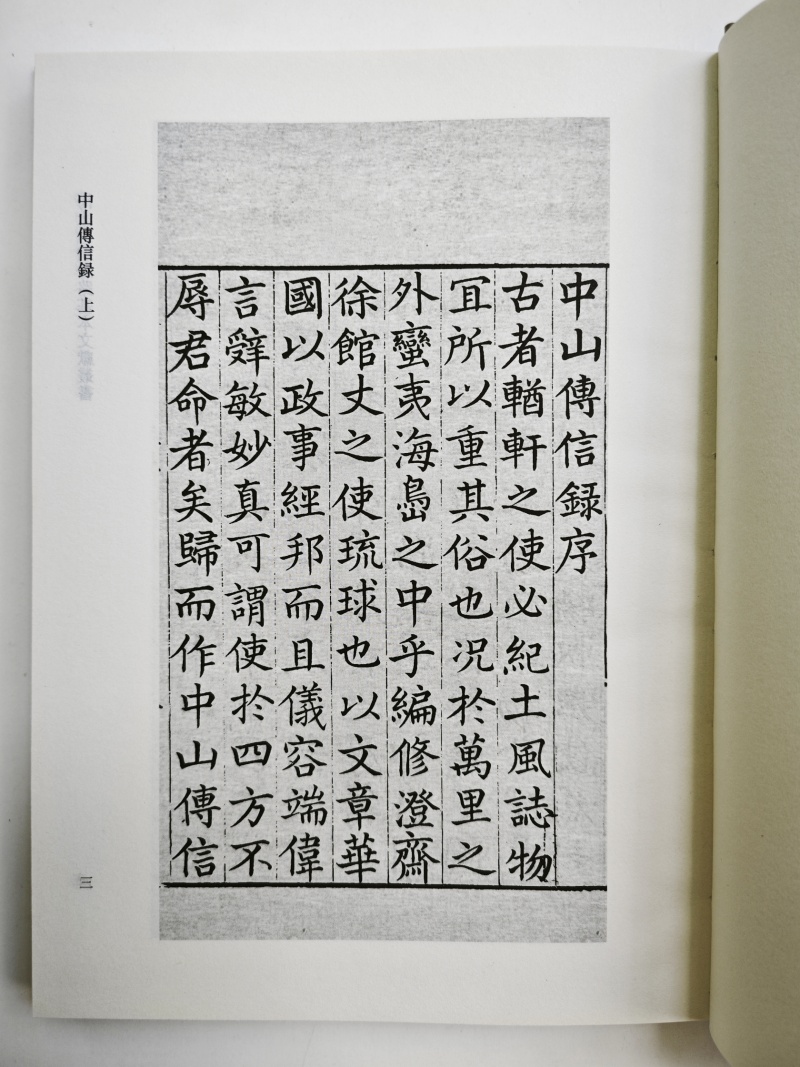 中山傳信錄序
古者輶軒之使必紀土風誌物
冝所以重其俗也况於萬里之
外蠻夷海㠀之中乎編修澄齋
徐館丈之使琉球也以文章華
國以政事經邦而且儀容端偉
言辤敏妙真可謂使於四方不
辱君命者矣歸而作中山傳信
中山傳信録（上）
三